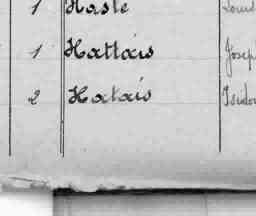 1 Haste Louis
1 Hattais Josep
2 Hatais Isidor